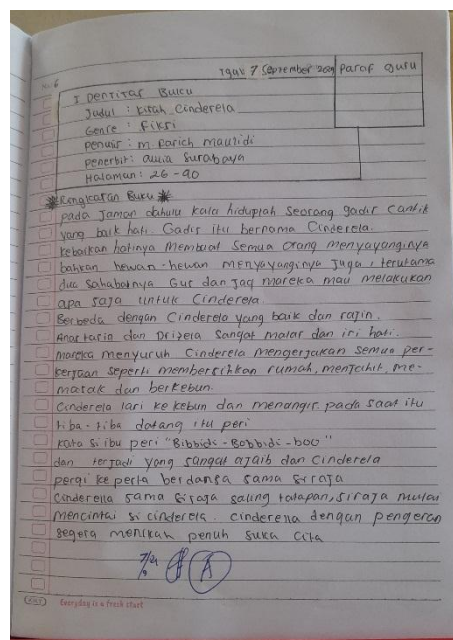 No. 6
Tgal: 7 September 2024 Paraf guru
Identitas Buku
Judul : Kisah Cinderela
Genre : Fiksi
Penulis : M. Farich Mauridi
Penerbit : Surabaya
Halaman : 26 - 90
Ringkasan Buku
Pada Jaman dahulu kala hiduplah Seorang gadis Cantik
yang baik hati. Gadis itu bernama Cinderela.
Kebaikan hatinya Membuat Semua orang Menyayanginya
bahkan hewan-hewan menyayanginya juga, terutama
dua Sahabatnya Gus dan Jaq mareka mau melakukan
apa saja untuk Cinderela.
Berbeda dengan Cinderela yang baik dan rajin.
Anastasia dan Drizela Sangat malas dan iri hati.
mareka menyuruh Cinderela mengerjakan semua per-
kerjaan seperti membersihkan rumah, menjahit, me-
masak dan berkebun.
Cinderela lari ke kebun dan menangis pada saat itu
tiba-tiba datang itu peri
kata si ibu peri "Bibbidi-Bobbidi-boo"
dan terjadi yang sangat ajaib dan Cinderela
pergi ke pesta berdansa sama si raja
Cinderella sama si raja saling tatapan, si raja mulai
mencintai si cinderela. cinderella dengan pengeran
segera menikah penuh suka cita
A
Everyday is a fresh start